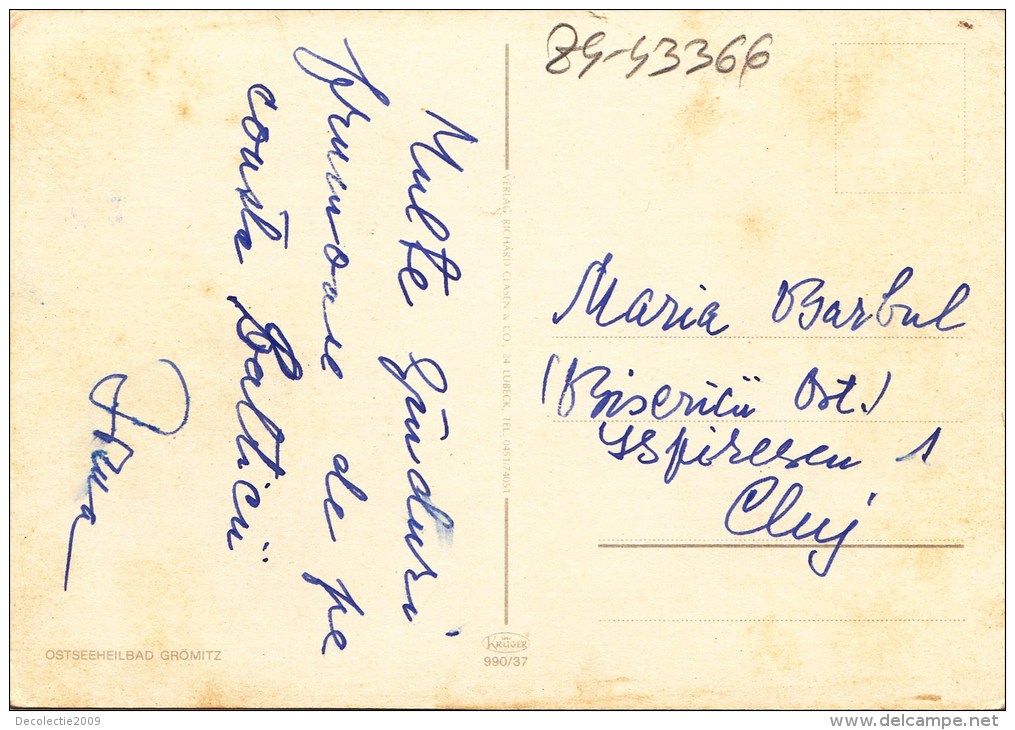 Multe gânduri
frumoase de pe
coasta Balticii
84-43366
Maria Barbul
(Bisericii Ort.)
Ispirescu 1
Cluj
VERLAG RICHARD CLASEN & CO. 24 LÜBECK, TEL. 0451/74051
OSTSEEHEILBAD GRÖMITZ
KRÜGER
990/37
Decolectie2009
www.delcampe.net